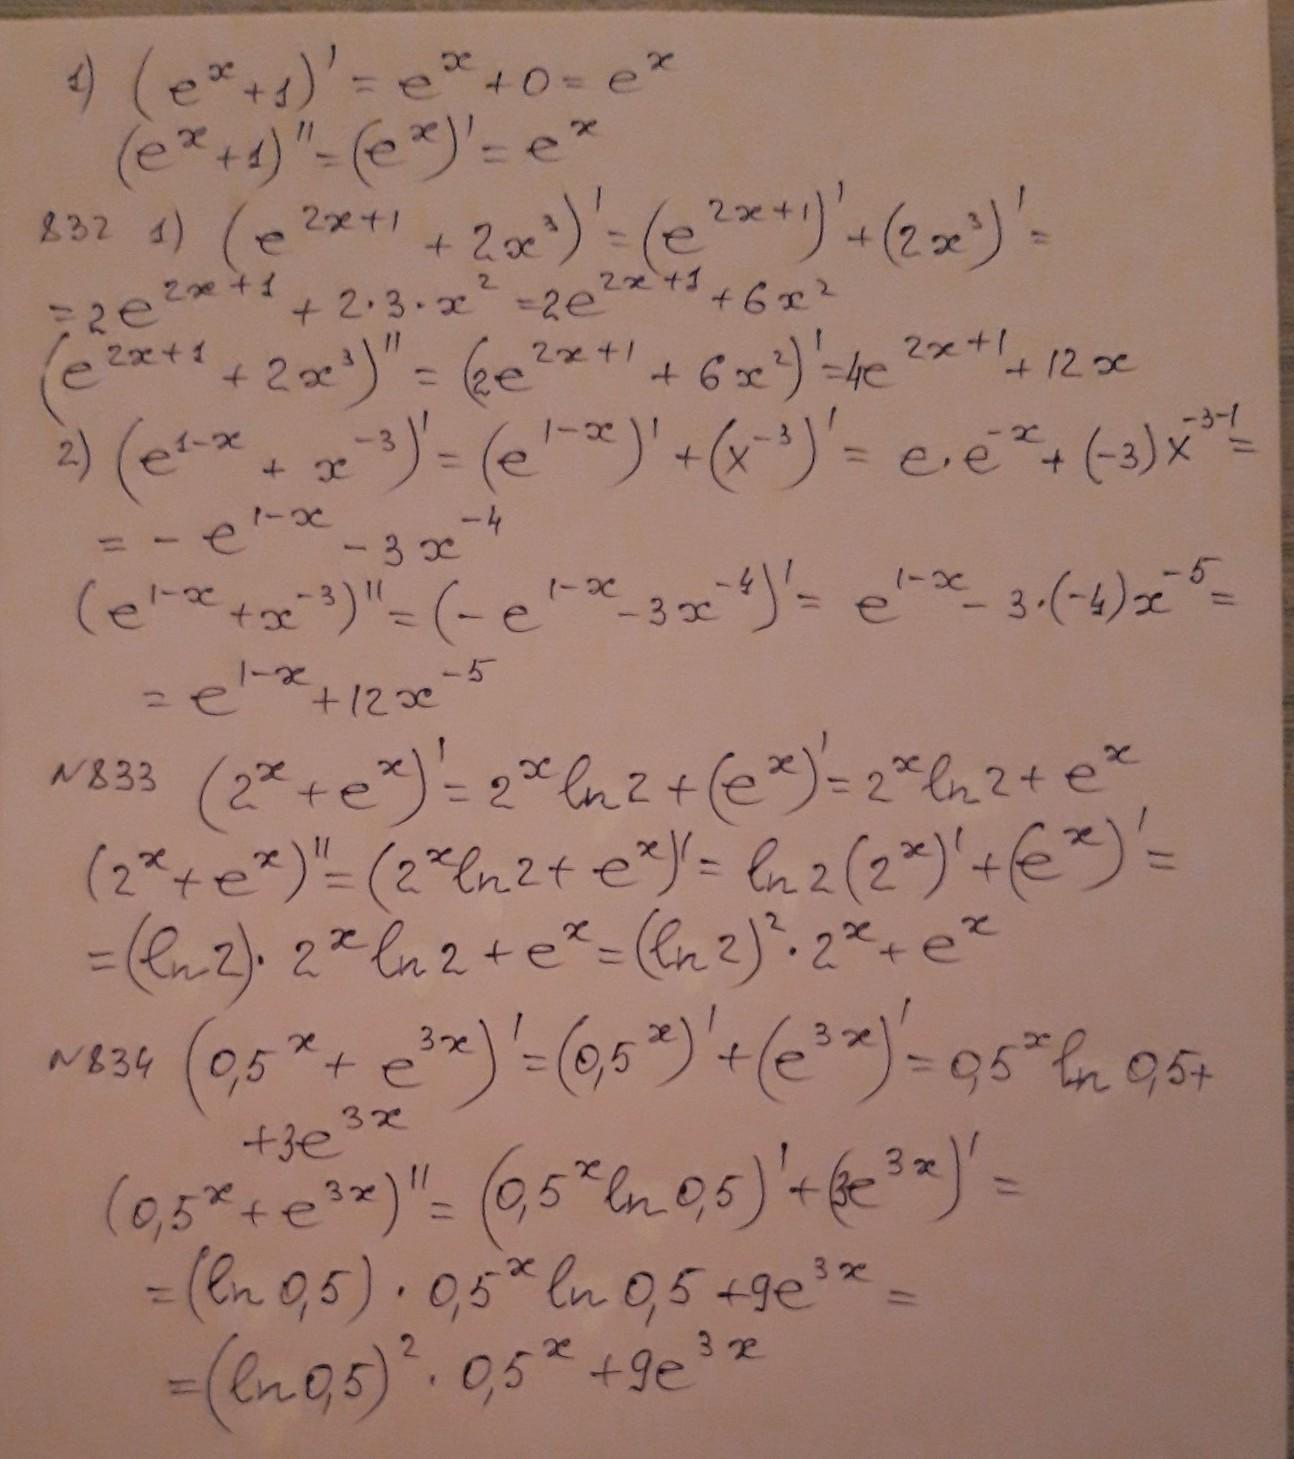 1) (e^x + 1)' = e^x + 0 = e^x
(e^x + 1)'' = (e^x)' = e^x
832 1) (e^{2x+1} + 2x^3)' = (e^{2x+1})' + (2x^3)' =
= 2e^{2x+1} + 2·3·x^2 = 2e^{2x+1} + 6x^2
(e^{2x+1} + 2x^3)'' = (2e^{2x+1} + 6x^2)' = 4e^{2x+1} + 12x
2) (e^{1-x} + x^{-3})' = (e^{1-x})' + (x^{-3})' = e·e^{-x} + (-3)x^{-3-1} =
= -e^{1-x} - 3x^{-4}
(e^{1-x} + x^{-3})'' = (-e^{1-x} - 3x^{-4})' = e^{1-x} - 3·(-4)x^{-5} =
= e^{1-x} + 12x^{-5}
N833 (2^x + e^x)' = 2^x ln 2 + (e^x)' = 2^x ln 2 + e^x
(2^x + e^x)'' = (2^x ln 2 + e^x)' = ln 2 (2^x)' + (e^x)' =
= (ln 2)· 2^x ln 2 + e^x = (ln 2)^2 · 2^x + e^x
N834 (0,5^x + e^{3x})' = (0,5^x)' + (e^{3x})' = 0,5^x ln 0,5 +
+ 3e^{3x}
(0,5^x + e^{3x})'' = (0,5^x ln 0,5)' + (3e^{3x})' =
= (ln 0,5) · 0,5^x ln 0,5 + 9e^{3x} =
= (ln 0,5)^2 · 0,5^x + 9e^{3x}